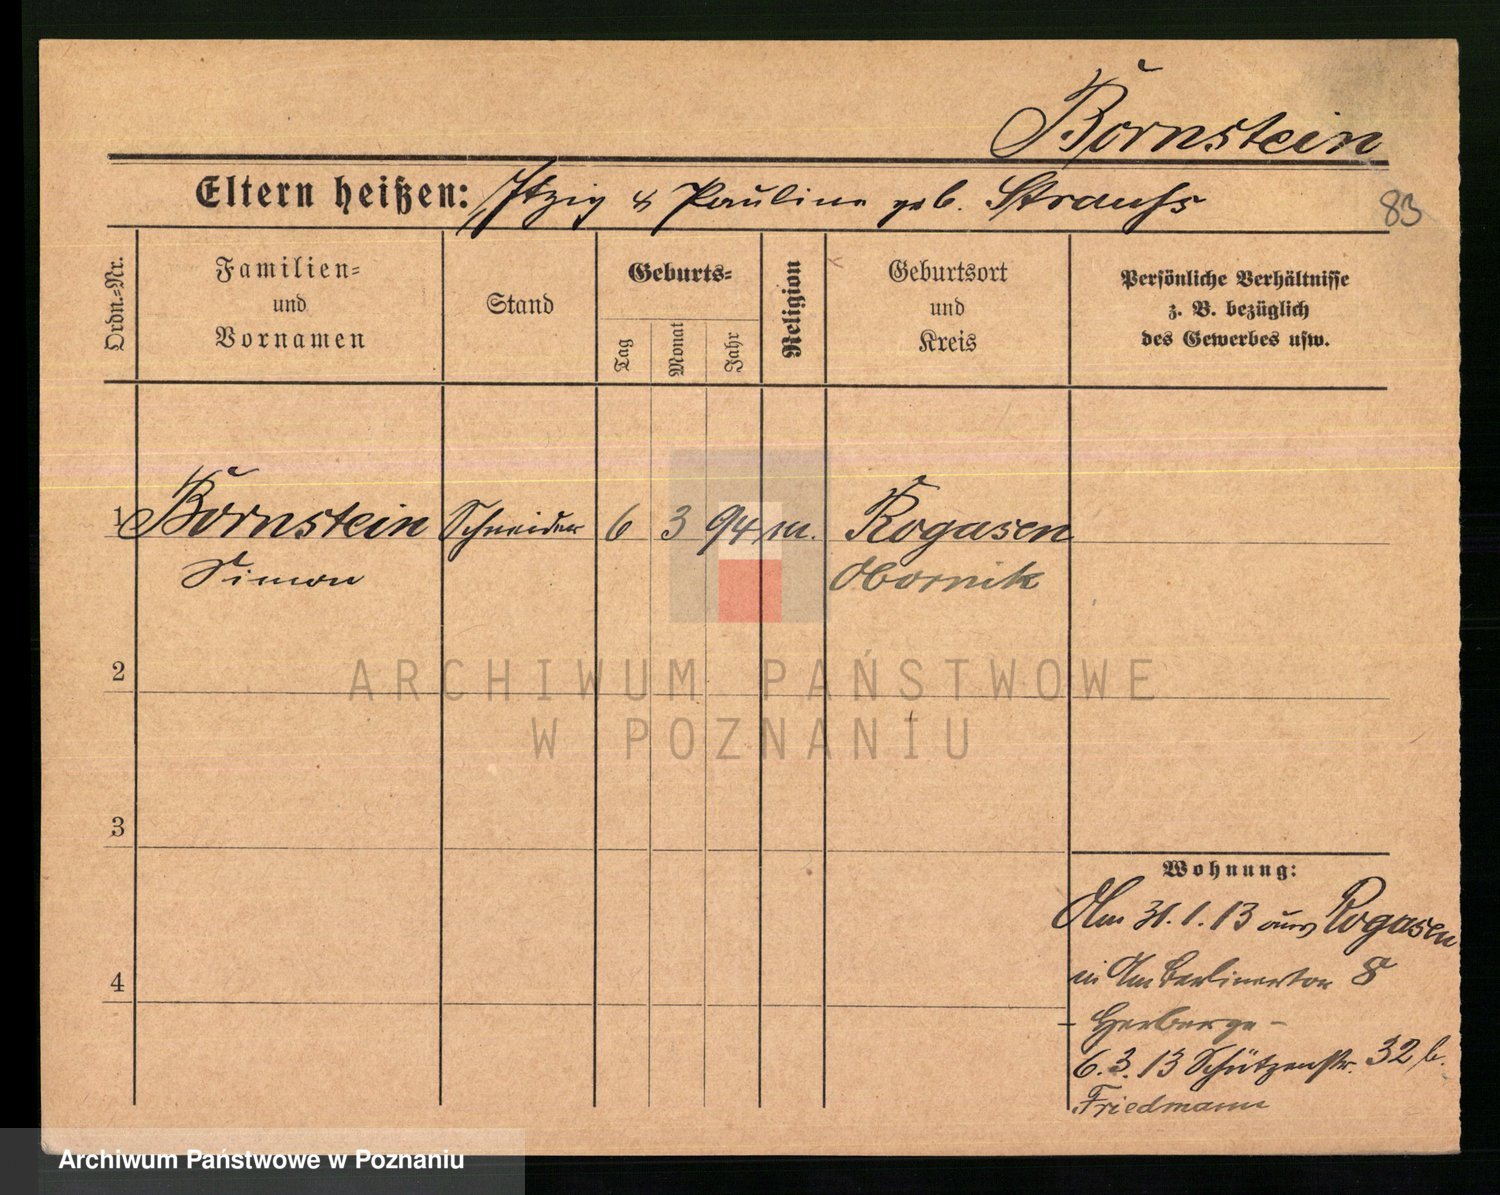 Bornstein
Eltern heißen: Itzig & Paulina geb. Strauss
83
Ordn.=Nr.
Familien=
und
Vornamen
Stand
Geburts=
Tag
Monat
Jahr
Religion
Geburtsort
und
Kreis
Persönliche Verhältnisse
z. B. bezüglich
des Gewerbes usw.
1 Bornstein Schneider 6 3 94 m. Rogasen
Simon Obornik
2
ARCHIWUM PAŃSTWOWE
W POZNANIU
3
4
Wohnung:
Am 31.1.13 aus Rogasen
in Am Berlinertor 8
- Herberge -
6.3.13 Schützenstr. 32 b.
Friedmann
Archiwum Państwowe w Poznaniu